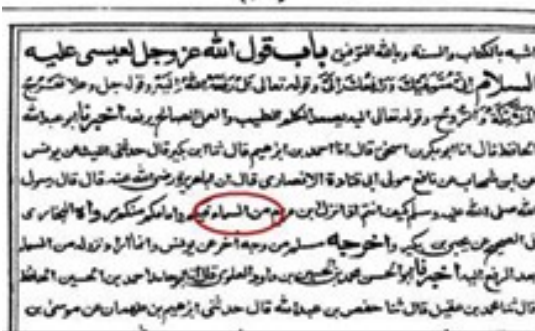 اشبه بالكتاب والسنة وبالله التوفيق باب قول الله عز وجل لعيسى عليه
السلام إني متوفيك ورافعك إلي وقوله تعالى بل رفعه الله إليه وقوله جل وعلا تعرج
الملائكة والروح وقوله تعالى اليه يصعد الكلم الطيب والعمل الصالح يرفعه أخبرنا أبو عبد الله
الحافظ قال انا ابو بكر بن اسحق قال انا احمد بن ابرهيم قال ثنا ابن بكير قال حدثني الليث عن يونس
عن ابن شهاب عن نافع مولى ابي قتادة الانصاري قال ان ابا هريرة رضي الله عنه قال قال رسول
الله صلى الله عليه وسلم كيف انتم اذا نزل ابن مريم من السماء فيكم وامامكم منكم رواه البخاري
في الصحيح عن يحيى بن بكير واخرجه مسلم من وجه آخر عن يونس وانما أراد نزوله من السماء
بعد الرفع اليه أخبرنا أبو الحسن محمد بن الحسين بن داود العلوي قال انا ابو حامد احمد بن الحسين الحافظ
قال ثنا محمد بن عقيل قال ثنا حفص بن عبد الله قال حدثني ابرهيم بن طهمان عن موسى بن